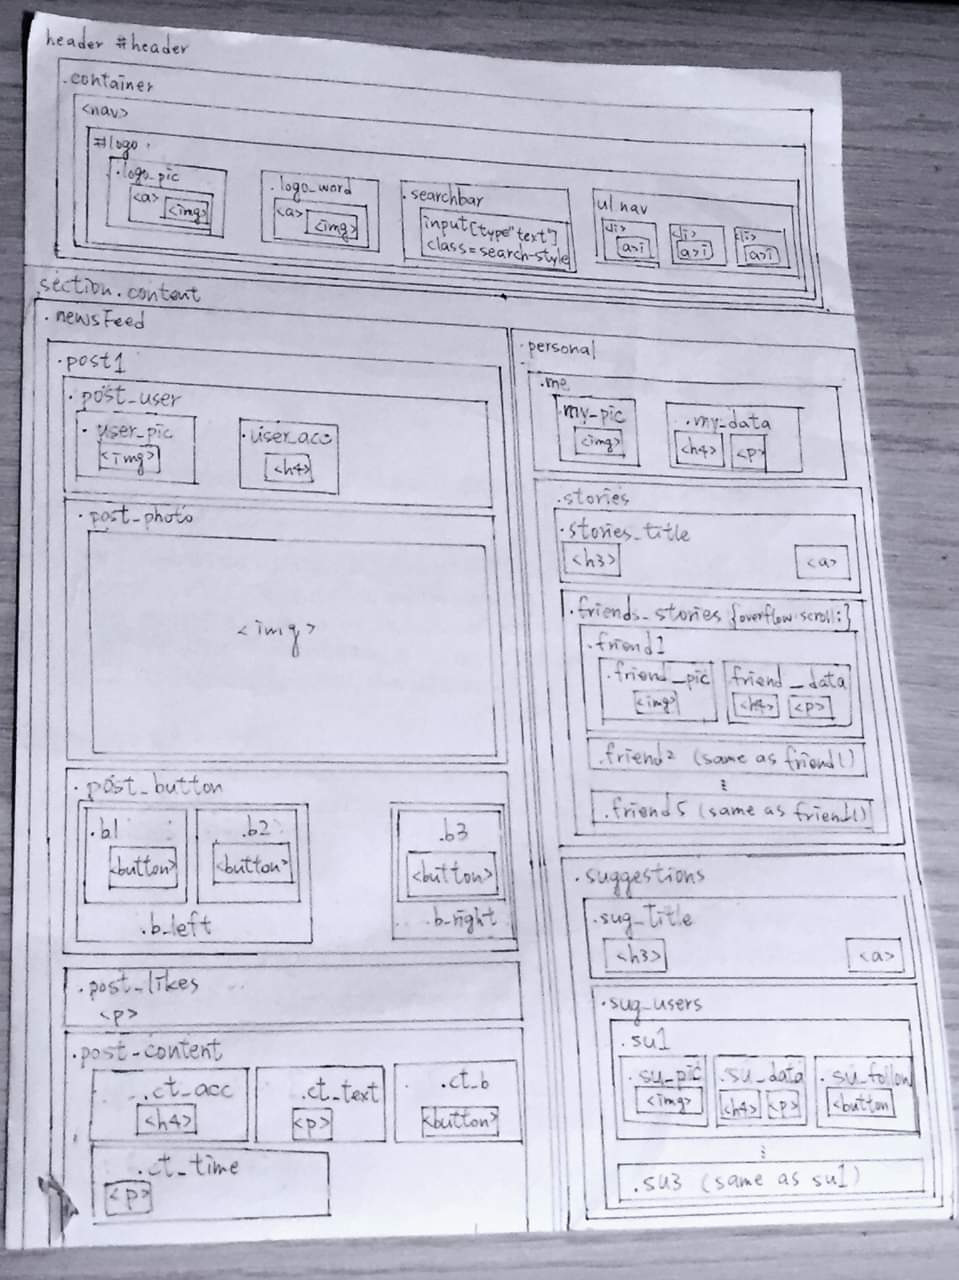 header #header
.container
<nav>
#logo
.logo_pic
<a>
<img>
.logo_word
<a>
<img>
.searchbar
input[type="text"]
class=search-style
ul nav
<li>
a>i
<li>
a>i
<li>
a>i
section.content
.newsFeed
.post1
.post_user
.user_pic
<img>
.user_acc
<h4>
.post_photo
<img>
.post_button
.b1
<button>
.b2
<button>
.b_left
.b3
<button>
.b_right
.post_likes
<p>
.post-content
.ct_acc
<h4>
.ct_text
<p>
.ct_b
<button>
.ct_time
<p>
.personal
.me
.my_pic
<img>
.my_data
<h4>
<p>
.stories
.stories_title
<h3>
<a>
.friends_stories {overflow:scroll;}
.friend1
.friend_pic
<img>
friend_data
<h4>
<p>
.friend2 (same as friend1)
.friend5 (same as friend1)
.suggestions
.sug_title
<h3>
<a>
.sug_users
.su1
.su_pic
<img>
.su_data
<h4>
<p>
.su_follow
<button
.su3 (same as su1)